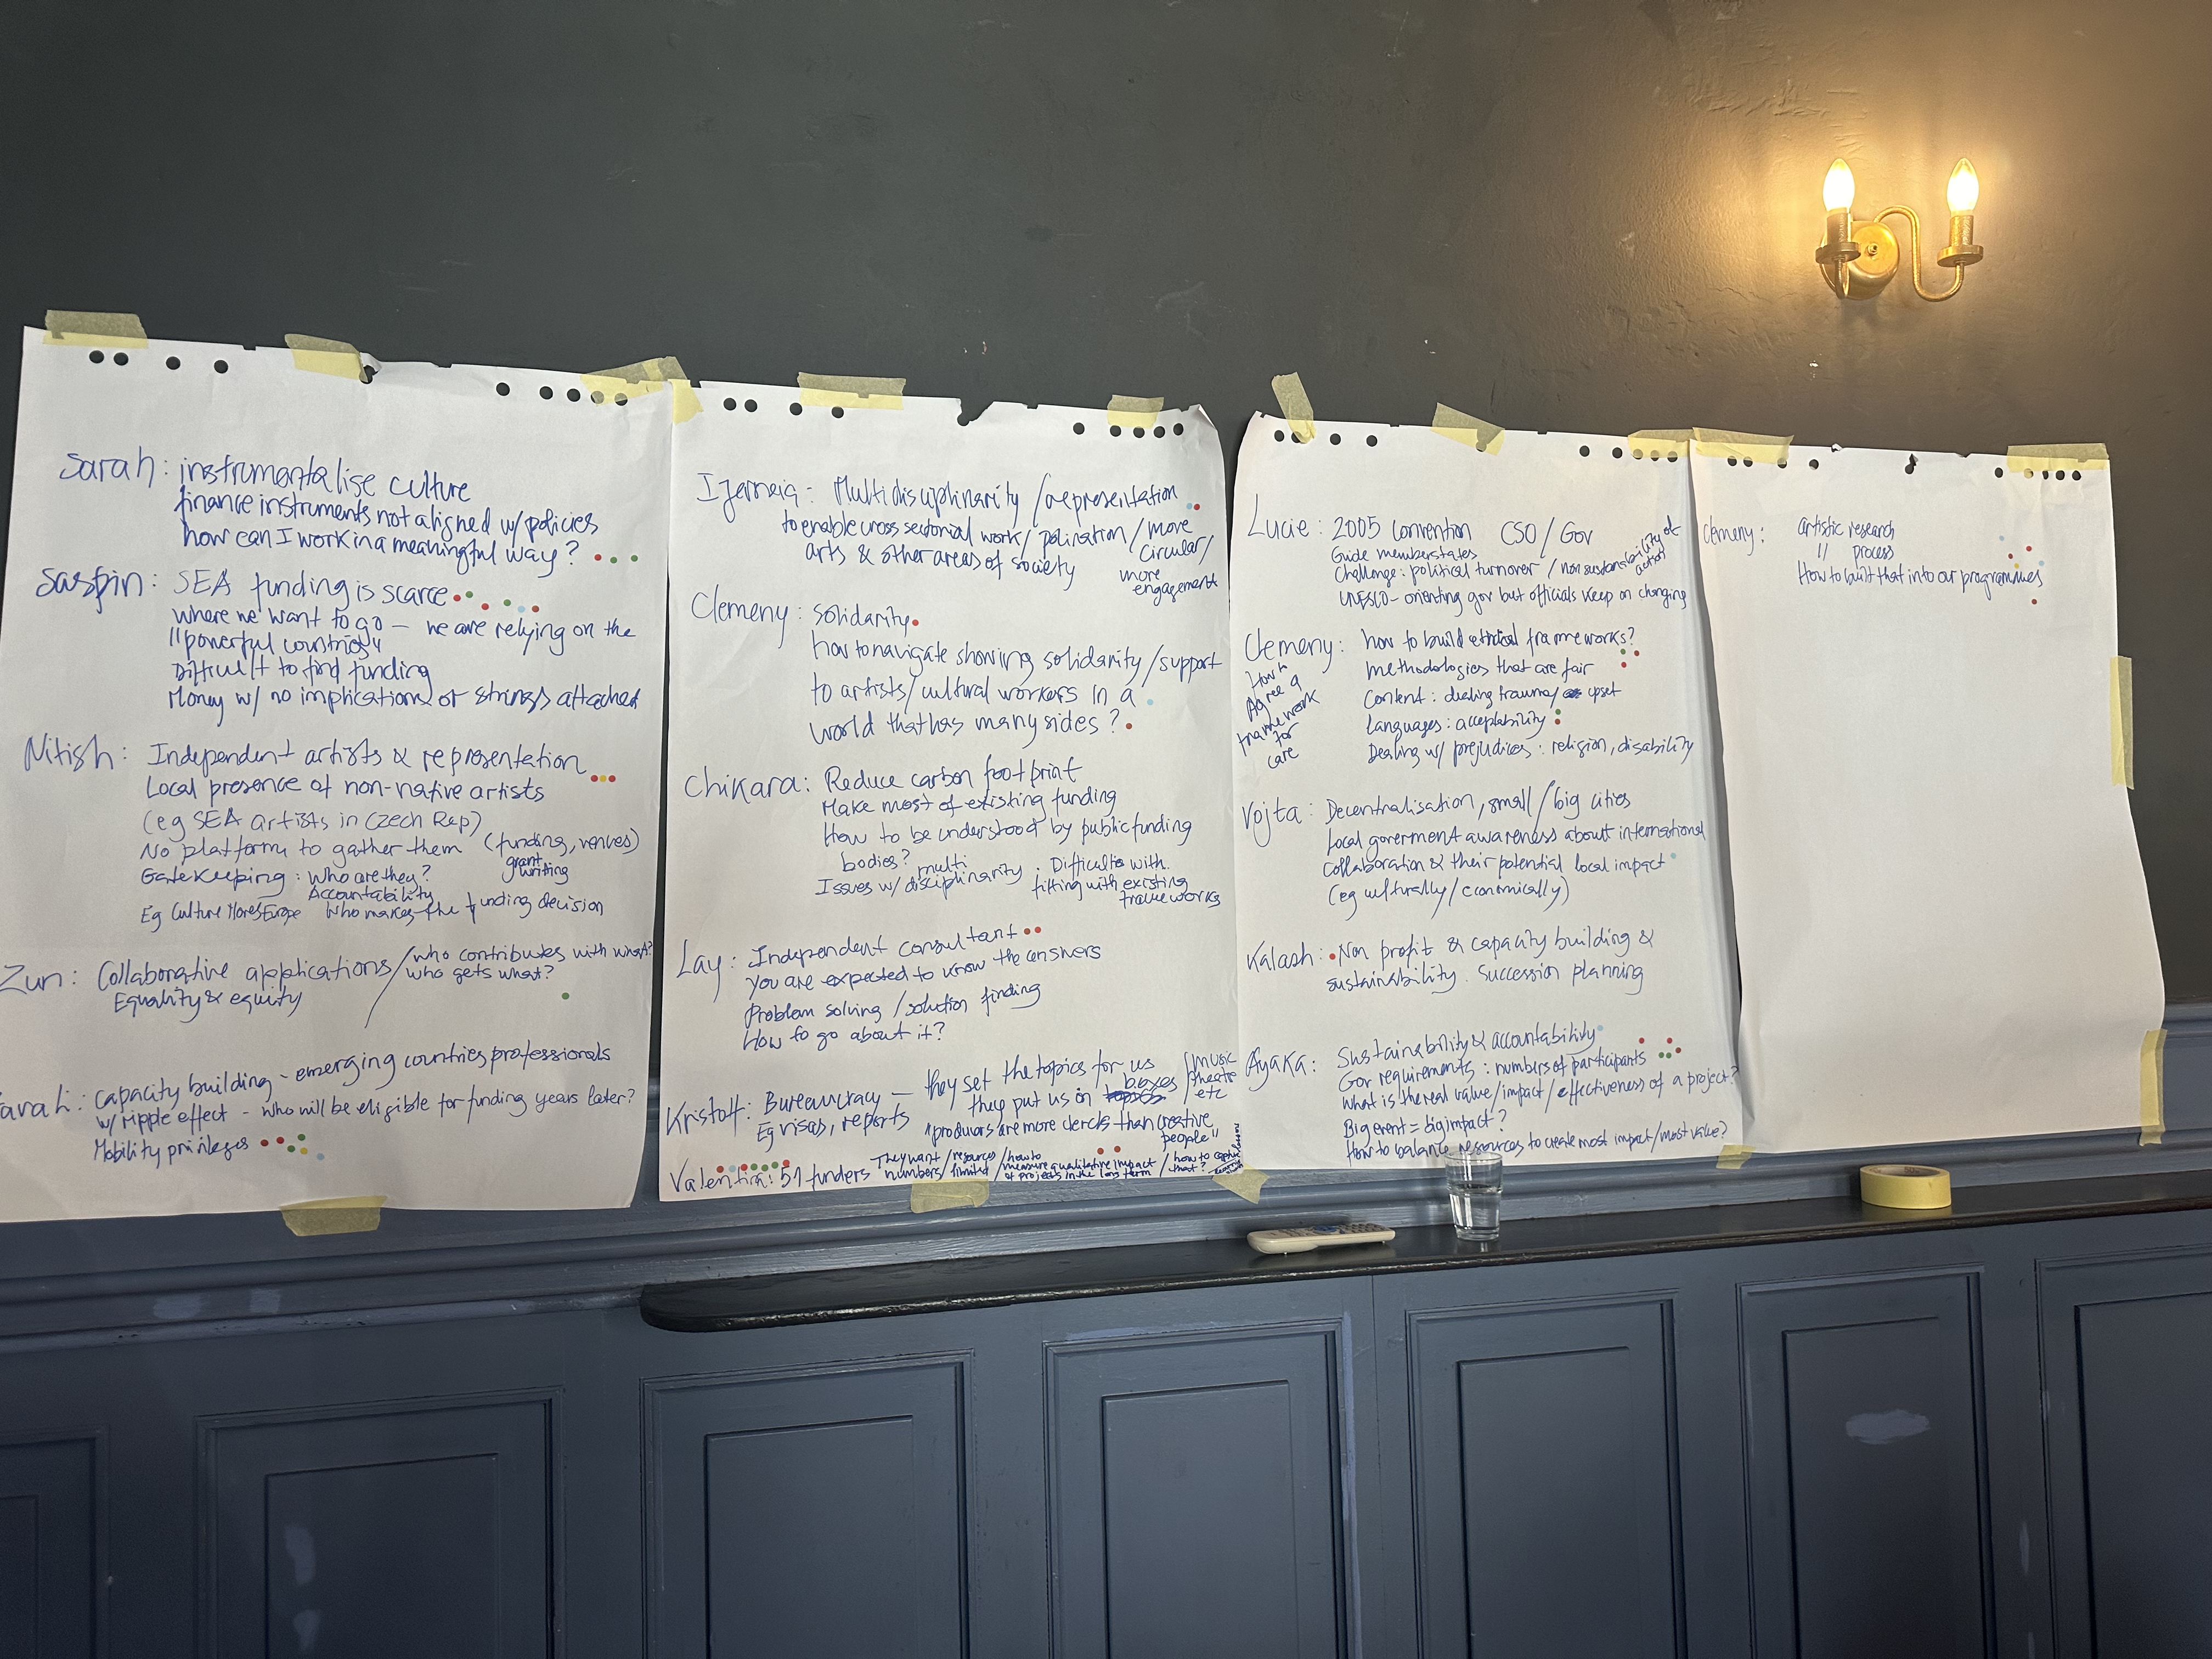 Sarah: instrumentalise culture
finance instruments not aligned w/ policies
how can I work in a meaningful way?
Saspin: SEA funding is scarce
where we want to go – we are relying on the
"powerful countries"
Difficult to find funding
Money w/ no implications or strings attached
Nitish: Independent artists & representation
Local presence of non-native artists
(eg SEA artists in Czech Rep)
No platform to gather them (funding, venues)
grant writing
Gatekeeping: who are they?
Accountability
Eg Culture Moves Europe who makes the funding decision
Zun: Collaborative applications / who contributes with what?
who gets what?
Equality & equity
arah: capacity building – emerging countries professionals
w/ ripple effect – who will be eligible for funding years later?
Mobility privileges
Multidisciplinarity / representation
to enable cross sectorial work / polination / more
circular/
arts & other areas of society
more
engagement
Clemeny: solidarity
how to navigate showing solidarity / support
to artists / cultural workers in a
world that has many sides?
Chikara: Reduce carbon footprint
Make most of existing funding
How to be understood by public funding
bodies?
Issues w/ multi disciplinarity. Difficulties with
fitting with existing
frameworks
Lay: Independent consultant
you are expected to know the answers
Problem solving / solution finding
How to go about it?
Kristoff: Bureaucracy – they set the topics for us
Eg visas, reports
they put us in boxes / music
theatre
etc
"producers are more clercks than creative
people"
Valentina: 51 funders They want numbers / resources limited / how to measure qualitative impact of projects in the long term / how to capture that?
Lucie: 2005 Convention CSO / Gov
Guide memberstates
Challenge: political turnover / non sustainability of
action
UNESCO – orienting gov but officials keep on changing
Clemeny: how to build ethical frameworks?
methodologies that are fair
Content: dealing trauma / upset
Languages: acceptability
Dealing w/ prejudices: religion, disability
How to
Agree a
framework
for
care
Vojta: Decentralisation, small / big cities
Local goverment awareness about international
collaboration & their potential local impact
(eg culturally / economically)
Kalash: Non profit & capacity building &
sustainability. Succession planning
Ayaka: Sustainability & accountability
Gov requirements: numbers of participants
What is the real value / impact / effectiveness of a project?
Big event = big impact?
How to balance resources to create most impact / most value?
Clemeny: artistic research
" process
How to built that into our programmes